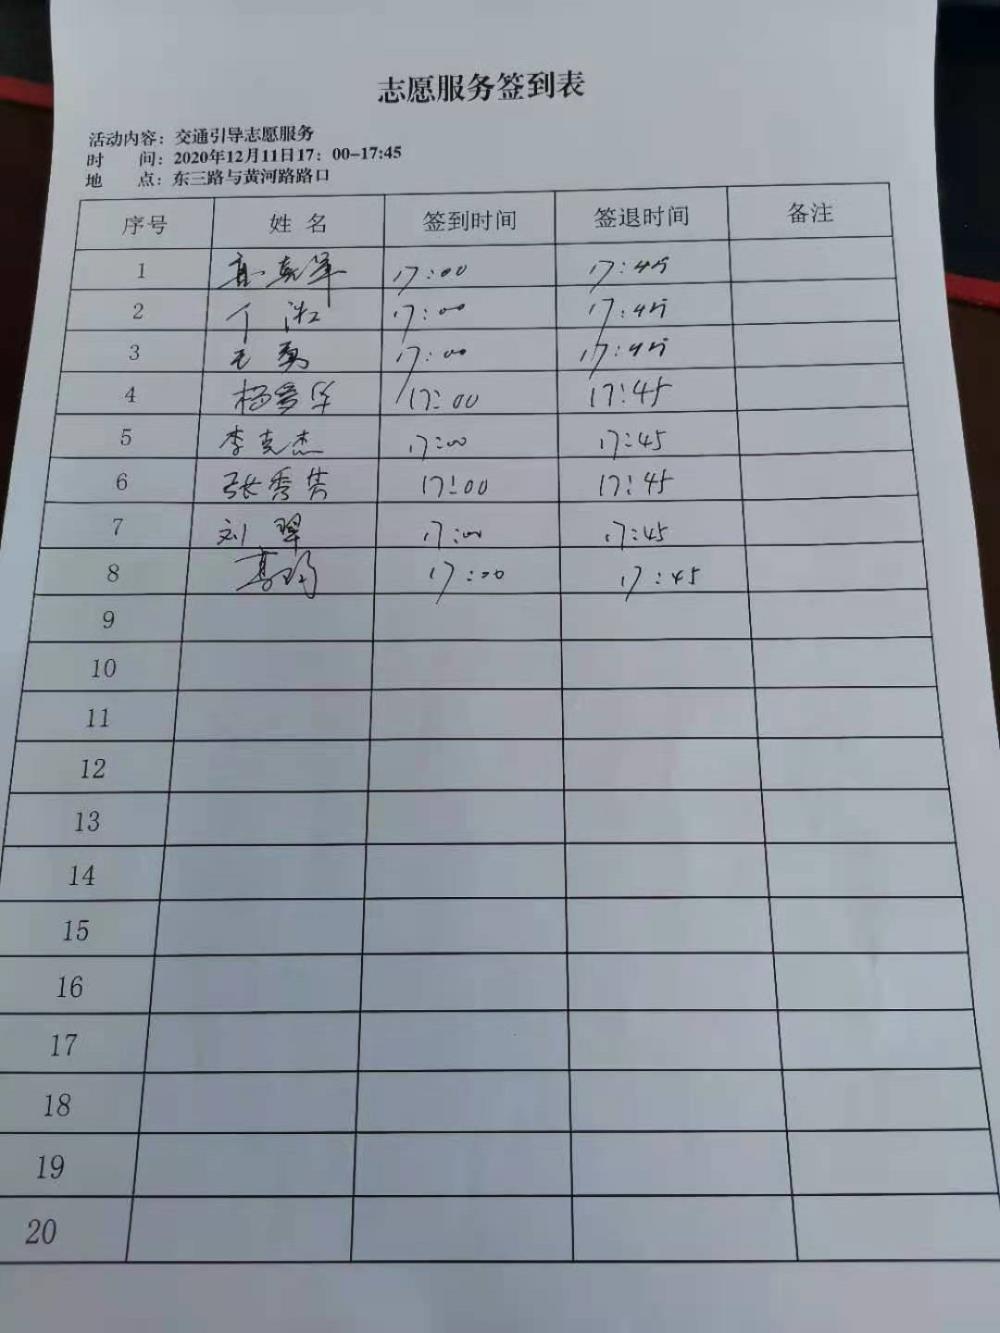 志愿服务签到表
活动内容：交通引导志愿服务
时 间：2020年12月11日17：00-17:45
地 点：东三路与黄河路路口
序号 姓名 签到时间 签退时间 备注
1 17:00 17:45
2 17:00 17:45
3 17:00 17:45
4 杨爱华 17:00 17:45
5 李克杰 17:00 17:45
6 张秀芳 17:00 17:45
7 刘翠 17:00 17:45
8 17:00 17:45
9
10
11
12
13
14
15
16
17
18
19
20